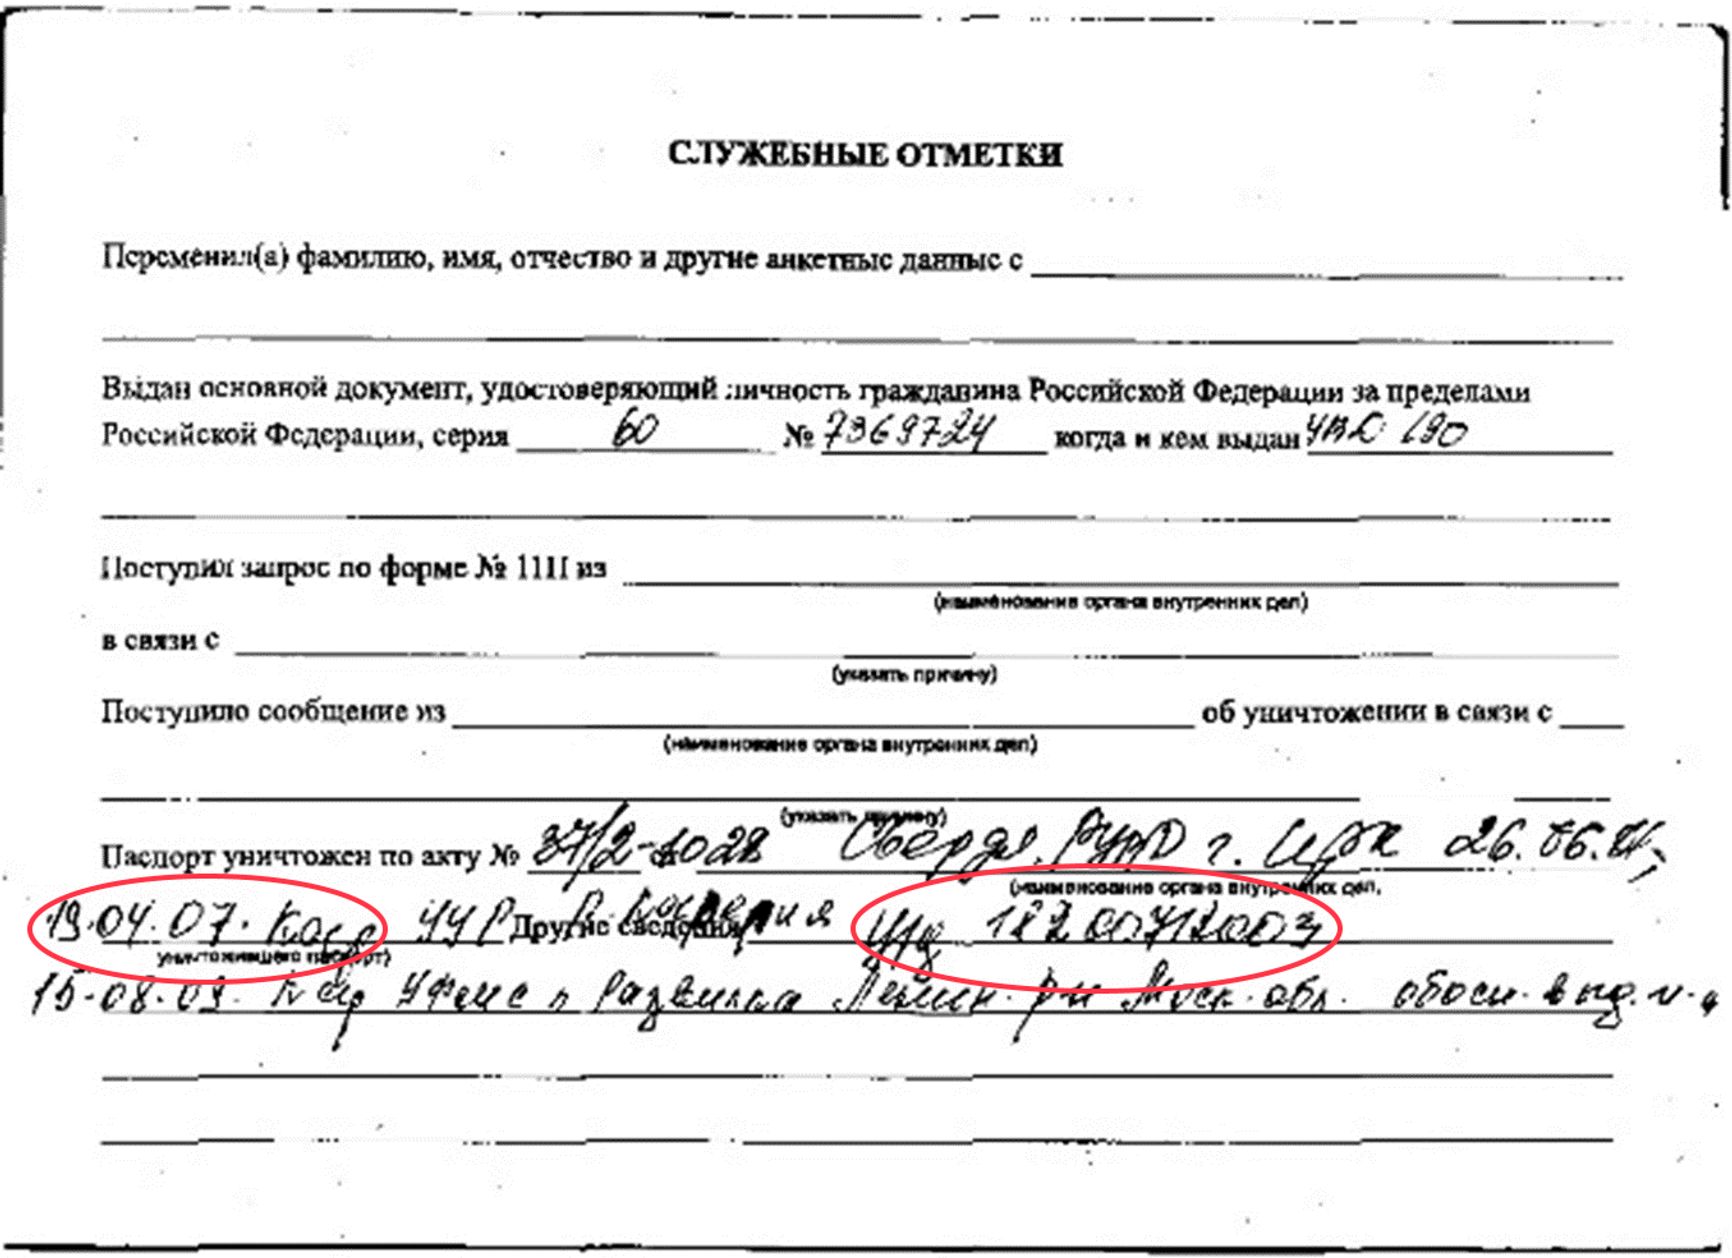 СЛУЖЕБНЫЕ ОТМЕТКИ
Переменил(а) фамилию, имя, отчество и другие анкетные данные с
Выдан основной документ, удостоверяющий личность гражданина Российской Федерации за пределами
Российской Федерации, серия 60 № 7369724 когда и кем выдан
Поступил запрос по форме № 11П из
(наименование органа внутренних дел)
в связи с
(указать причину)
Поступило сообщение из об уничтожении в связи с
(наименование органа внутренних дел)
(указать причину)
Паспорт уничтожен по акту № 37/2-1028 Свердл. РУВД г. Ирк 26.06.
(наименование органа внутренних дел,
19.04.07. УУР Другие сведения
уничтожившего паспорт)
15.08.09. п. Развилка Ленин. р-н Моск. обл.